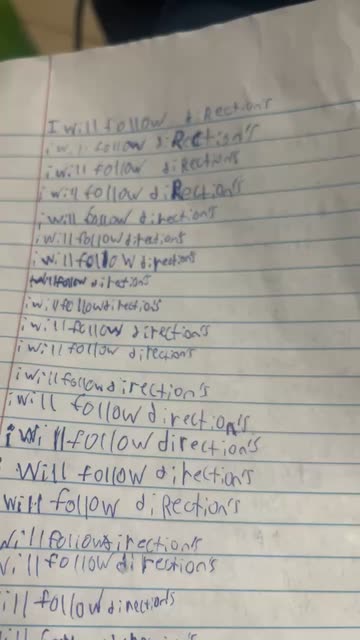 I will follow diRection's
i will follow diRection's
i will follow diRections
i will follow diRection's
i will follow direction's
i will follow directions
i will follow directions
will follow directions
i will follow directions
i will follow direction's
i will follow directions
i will follow direction's
i will follow direction's
i will follow direction's
i will follow direction's
will follow diRection's
will follow direction's
will follow direction's
ill follow directions